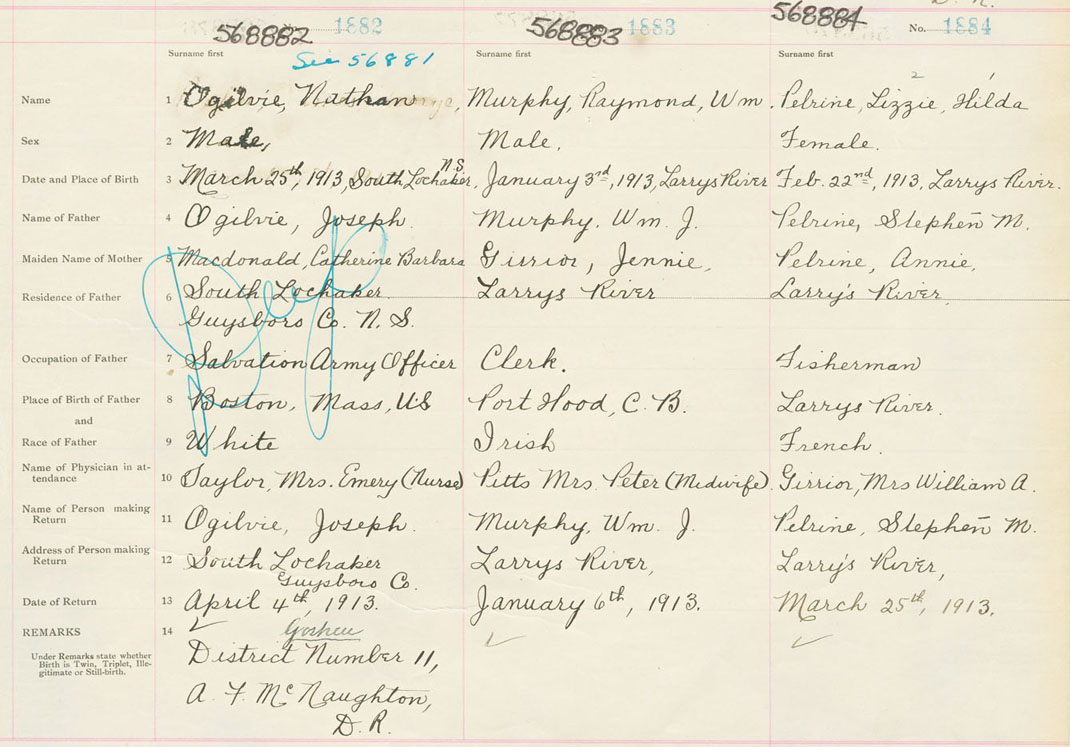 568882 1882 568883 1883 568884 No. 1884
See 56881
Surname first Surname first Surname first
Name 1 Ogilvie, Nathan Murphy, Raymond, Wm. Pelrine, Lizzie, Hilda
Sex 2 Male, Male, Female.
Date and Place of Birth 3 March 25th, 1913, South Lochaber, N.S. January 3rd, 1913, Larrys River Feb. 22nd, 1913, Larrys River.
Name of Father 4 Ogilvie, Joseph. Murphy, Wm. J. Pelrine, Stephen M.
Maiden Name of Mother 5 Macdonald, Catherine Barbara Girrior, Jennie, Pelrine, Annie,
Residence of Father 6 South Lochaber. Larrys River Larry's River,
Guysboro Co. N. S.
Occupation of Father 7 Salvation Army Officer Clerk. Fisherman
Place of Birth of Father 8 Boston, Mass, US Port Hood, C. B. Larrys River.
and
Race of Father 9 White Irish French.
Name of Physician in at-
tendance 10 Taylor, Mrs. Emery (Nurse) Pitts Mrs. Peter (Midwife). Girrior, Mrs William A.
Name of Person making
Return 11 Ogilvie, Joseph. Murphy, Wm. J. Pelrine, Stephen M.
Address of Person making
Return 12 South Lochaber Larrys River, Larry's River,
Guysboro Co.
Date of Return 13 April 4th, 1913. January 6th, 1913. March 25th, 1913.
REMARKS 14 Goshen
Under Remarks state whether
Birth is Twin, Triplet, Ille-
gitimate or Still-birth.
District Number 11,
A. F. McNaughton,
D. R.